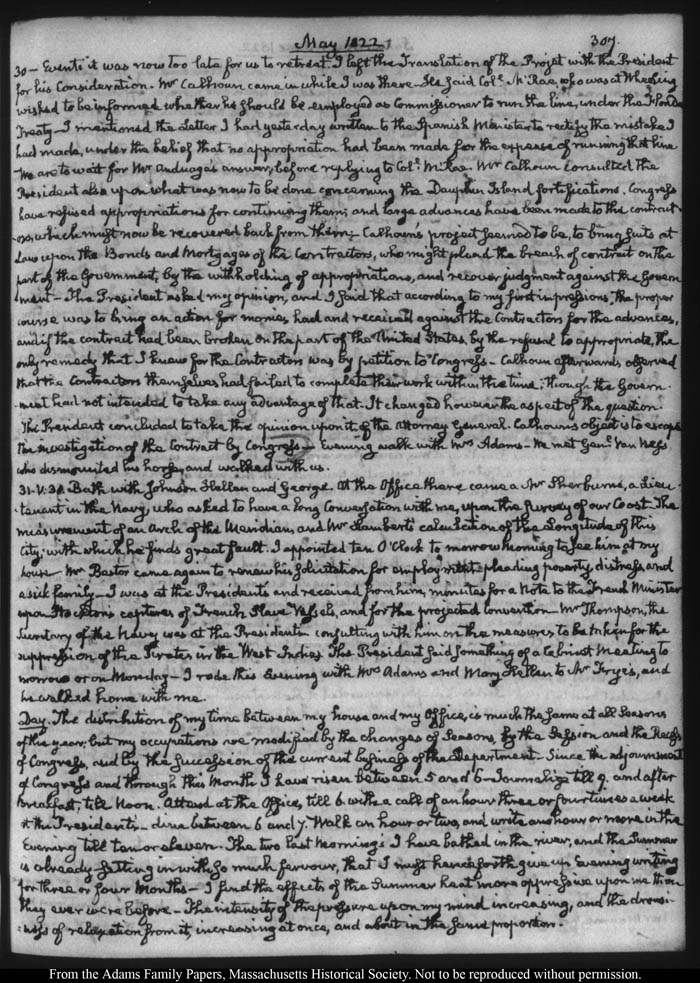 May 1822.
307.
30 — Events it was now too late for us to retreat. I left the Translation of the Projet with the President
for his Consideration. Mr Calhoun came in while I was there. He said Coll. McRae, who was at Wheeling
wished to be informed whether he should be employed as Commissioner to run the line, under the Florida
Treaty — I mentioned the Letter I had yesterday written to the Spanish Minister to rectify the mistake I
had made, under the belief that no appropriation had been made for the expense of running that line
We are to wait for Mr Anduaga's answer, before replying to Coll. McRae. Mr Calhoun consulted the
President also upon what was now to be done concerning the Dauphin Island fortifications. Congress
have refused appropriations for continuing them; and large advances have been made to the contract-
ors, which must now be recovered back from them — Calhoun's project seemed to be, to bring suits at
Law upon the Bonds and Mortgages of the Contractors, who might plead the breach of contract on the
part of the Government, by the withholding of appropriations, and recover judgment against the Govern-
ment — The President asked my opinion, and I said that according to my first impressions, the proper
course was to bring an action for monies, had and received against the Contractors for the advances,
and if the contract had been broken on the part of the United States, by the refusal to appropriate, the
only remedy that I knew for the Contractors was by petition to Congress — Calhoun afterwards observed
that the Contractors themselves had failed to complete their work within the time; though the Govern-
ment had not intended to take any advantage of that. It changed however the aspect of the question.
The President concluded to take the opinion upon it, of the Attorney General. Calhoun's object is to escape
the investigation of the Contract by Congress — Evening walk with Mrs Adams — We met Genl. Van Ness
who dismounted his horse, and walked with us.
31. V:30. Bath with Johnson Hellen and George. At the Office there came a Mr Sherburne, a Lieu-
tenant in the Navy, who asked to have a long Conversation with me, upon the Survey of our Coast. The
measurement of an Arch of the Meridian, and Mr Lambert's calculation of the Longitude of this
City; with which he finds great fault. I appointed ten O'Clock to morrow morning to see him at my
house. Mr Bastor came again to renew his solicitation for employment; pleading poverty, distress and
a sick family — I was at the President's and received from him, minutes for a Note to the French Minister
upon Stockton's captures of French Slave Vessels, and for the projected convention — Mr Thompson, the
Secretary of the Navy was at the President's consulting with him on the measures to be taken for the
suppression of the Pirates in the West Indies. The President said something of a Cabinet Meeting to
morrow or on Monday — I rode this Evening with Mrs Adams and Mary Hellen to Mr Frye's, and
he walked home with me.
Day. The distribution of my time between my house and my Office, is much the same at all Seasons
of the year, but my occupations are modified by the changes of Seasons, by the Session and the Recess
of Congress, and by the succession of the current business of the Department — Since the adjournment
of Congress and through this Month I have risen between 5 and 6 — Journalize till 9. and after
breakfast, till Noon. Attend at the Office, till 6. with a call of an hour three or four times a week
at the President's — dine between 6 and 7. Walk an hour or two, and write an hour or more in the
Evening till ten or eleven. The two last mornings I have bathed in the river, and the Summer
is already setting in with so much fervour, that I must henceforth give up Evening writing
for three or four Months — I find the effects of the Summer heat more oppressive upon me than
they ever were before — The intensity of the pressure upon my mind increasing, and the drowsi-
ness of relaxation from it, increasing at once, and about in the same proportion.
From the Adams Family Papers, Massachusetts Historical Society. Not to be reproduced without permission.